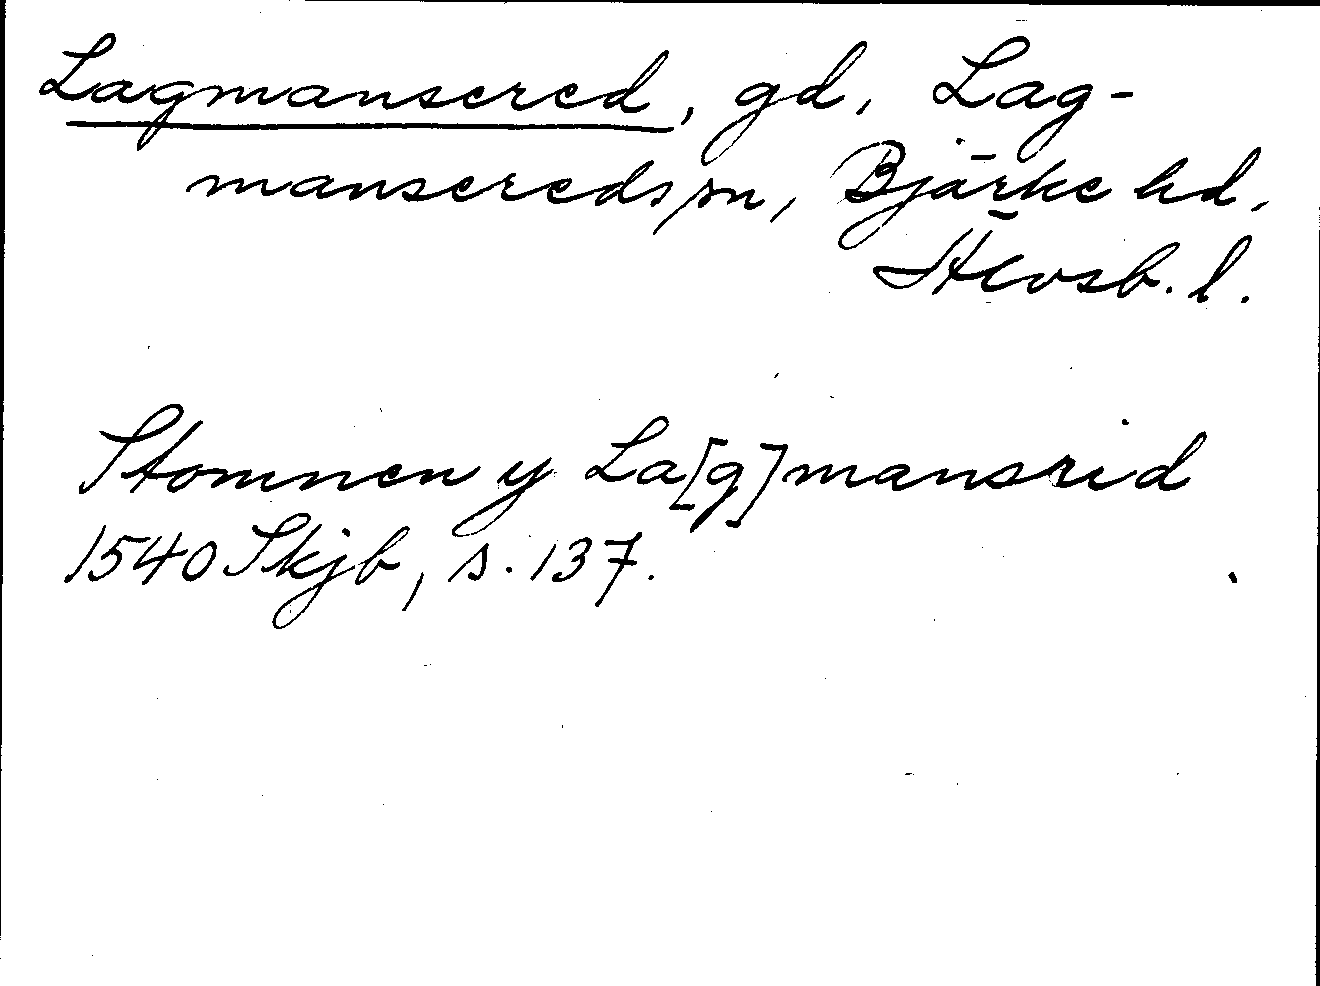 Lagmansered, gd, Lag-
mansereds sn, Bjärke hd,
Älvsb. l.
Stommen y La[g]mansrid
1540 Skjb, s. 137.